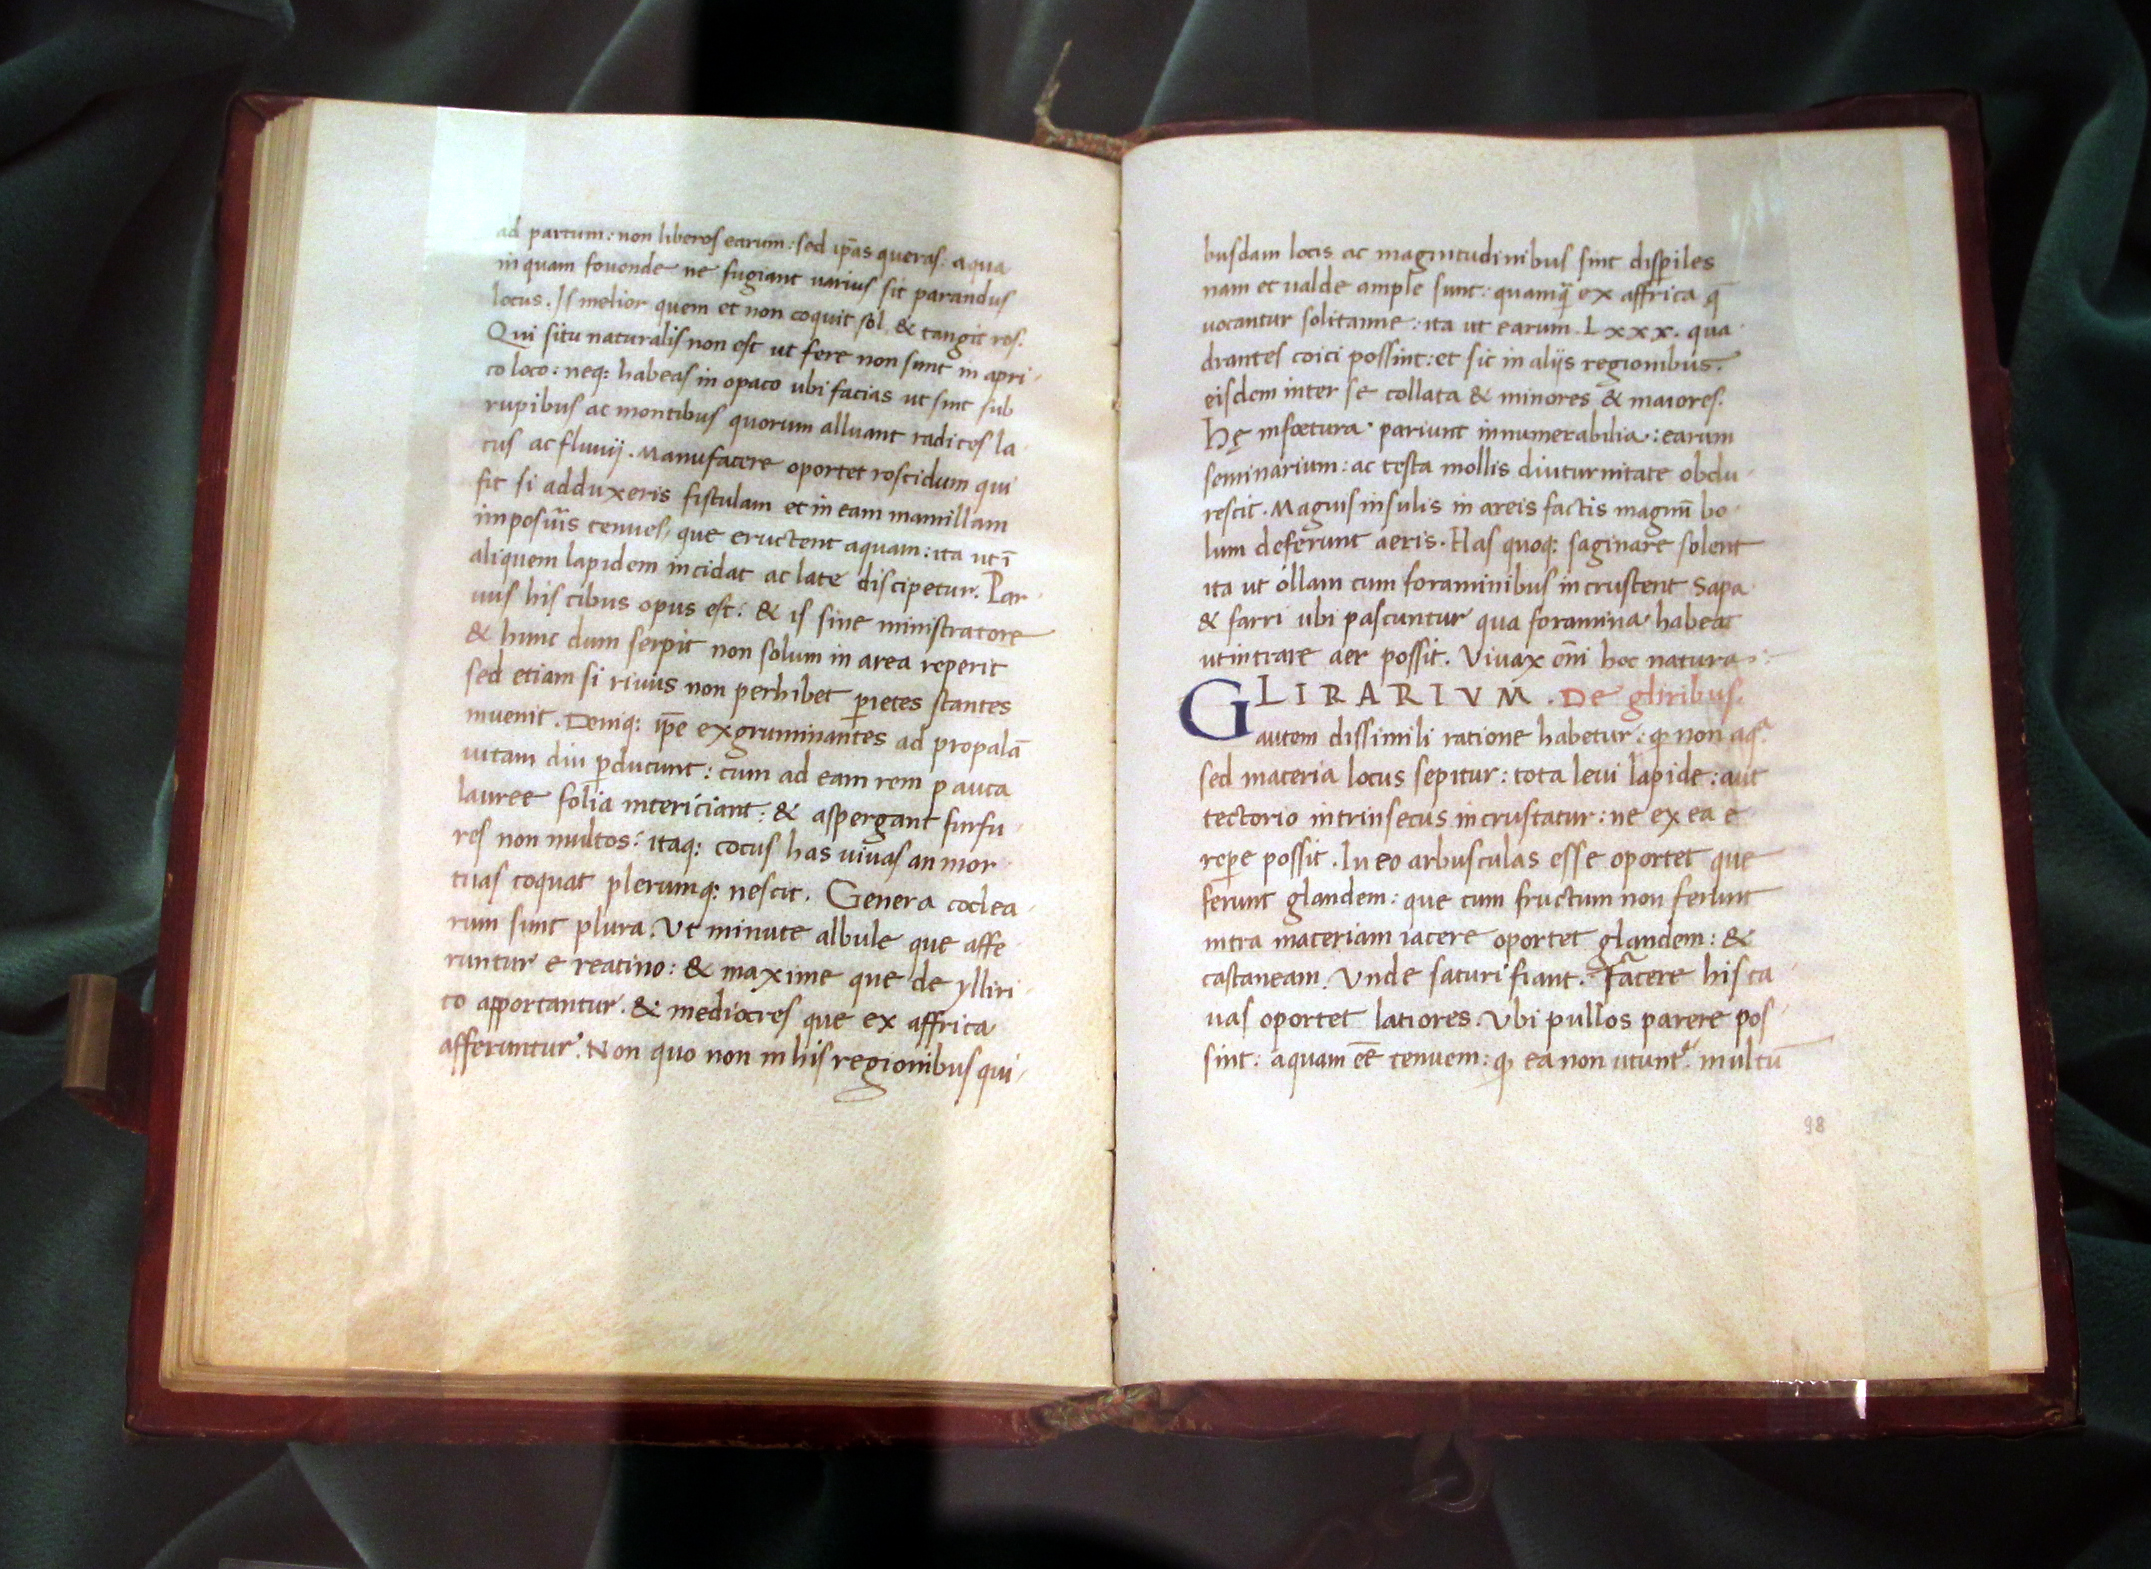 ad partum: non liberos earum: sed ip̄as queras: aqua
in quam fouende ne fugiant uarius sit parandus
locus. Is melior quem et non coquit sol & tangit ros.
Qui situ naturalis non est ut fere non sunt in apri-
co loco: neq: habeas in opaco ubi facias ut sint sub
rupibus ac montibus quorum alluant radices la-
cus ac fluuij. Manufacere oportet roscidum qui
fit si adduxeris fistulam et in eam mamillam
imposuīs tenues, que eructent aquam: ita ut ī
aliquem lapidem incidat ac late discipetur. Par-
uus his cibus opus est: & is sine ministratore
& hunc dum serpit non solum in area reperit
sed etiam si riuus non perhibet ꝑietes stantes
inuenit. Deniq: ip̄e exgruminantes ad propalā
uitam diu ꝑducunt: cum ad eam rem pauca
lauree folia intericiant: & aspergant furfu-
res non multos: itaq: cocus has uiuas an mor-
tuas coquat plerumq: nescit. Genera coclea-
rum sunt plura. Vt minute albule que affe-
runtur e reatino: & maxime que de ylliri-
co apportantur. & mediocres que ex affrica
afferuntur. Non quo non in his regionibus qui-
busdam locis ac magnitudinibus sint disꝑiles
nam et ualde ample sunt: quamq̄ ex affrica q̄
uocantur solitanne: ita ut earum. Lxxx. qua-
drantes coici possint: et sic in alijs regionibus.
eisdem inter se collata & minores & maiores.
Hę insoetura pariunt innumerabilia: earum
seminarium: ac testa mollis diuturnitate obdu-
rescit. Magnis insulis in areis factis magnū bo-
lum deferunt aeris. Has quoq: saginare solent
ita ut ollam cum foraminibus incrustent sapa
& farri ubi pascuntur qua foramina habeat
ut intrare aer possit. Viuax om̄i hoc natura
GLIRARIVM. De gliribus.
autem dissimili ratione habetur: ꝙ non aqᵃ
sed materia locus sepitur: tota leui lapide: aut
tectorio intrinsecus incrustatur: ne ex ea e
reꝑe possit. In eo arbusculas esse oportet que
ferunt glandem: que cum fructum non ferunt
intra materiam iacere oportet glandem: &
castaneam. Vnde saturi fiant. Facere his ca-
uas oportet latiores. Vbi pullos parere pos-
sint: aquam eē tenuem: ꝙ ea non utunt᷑: multū
98